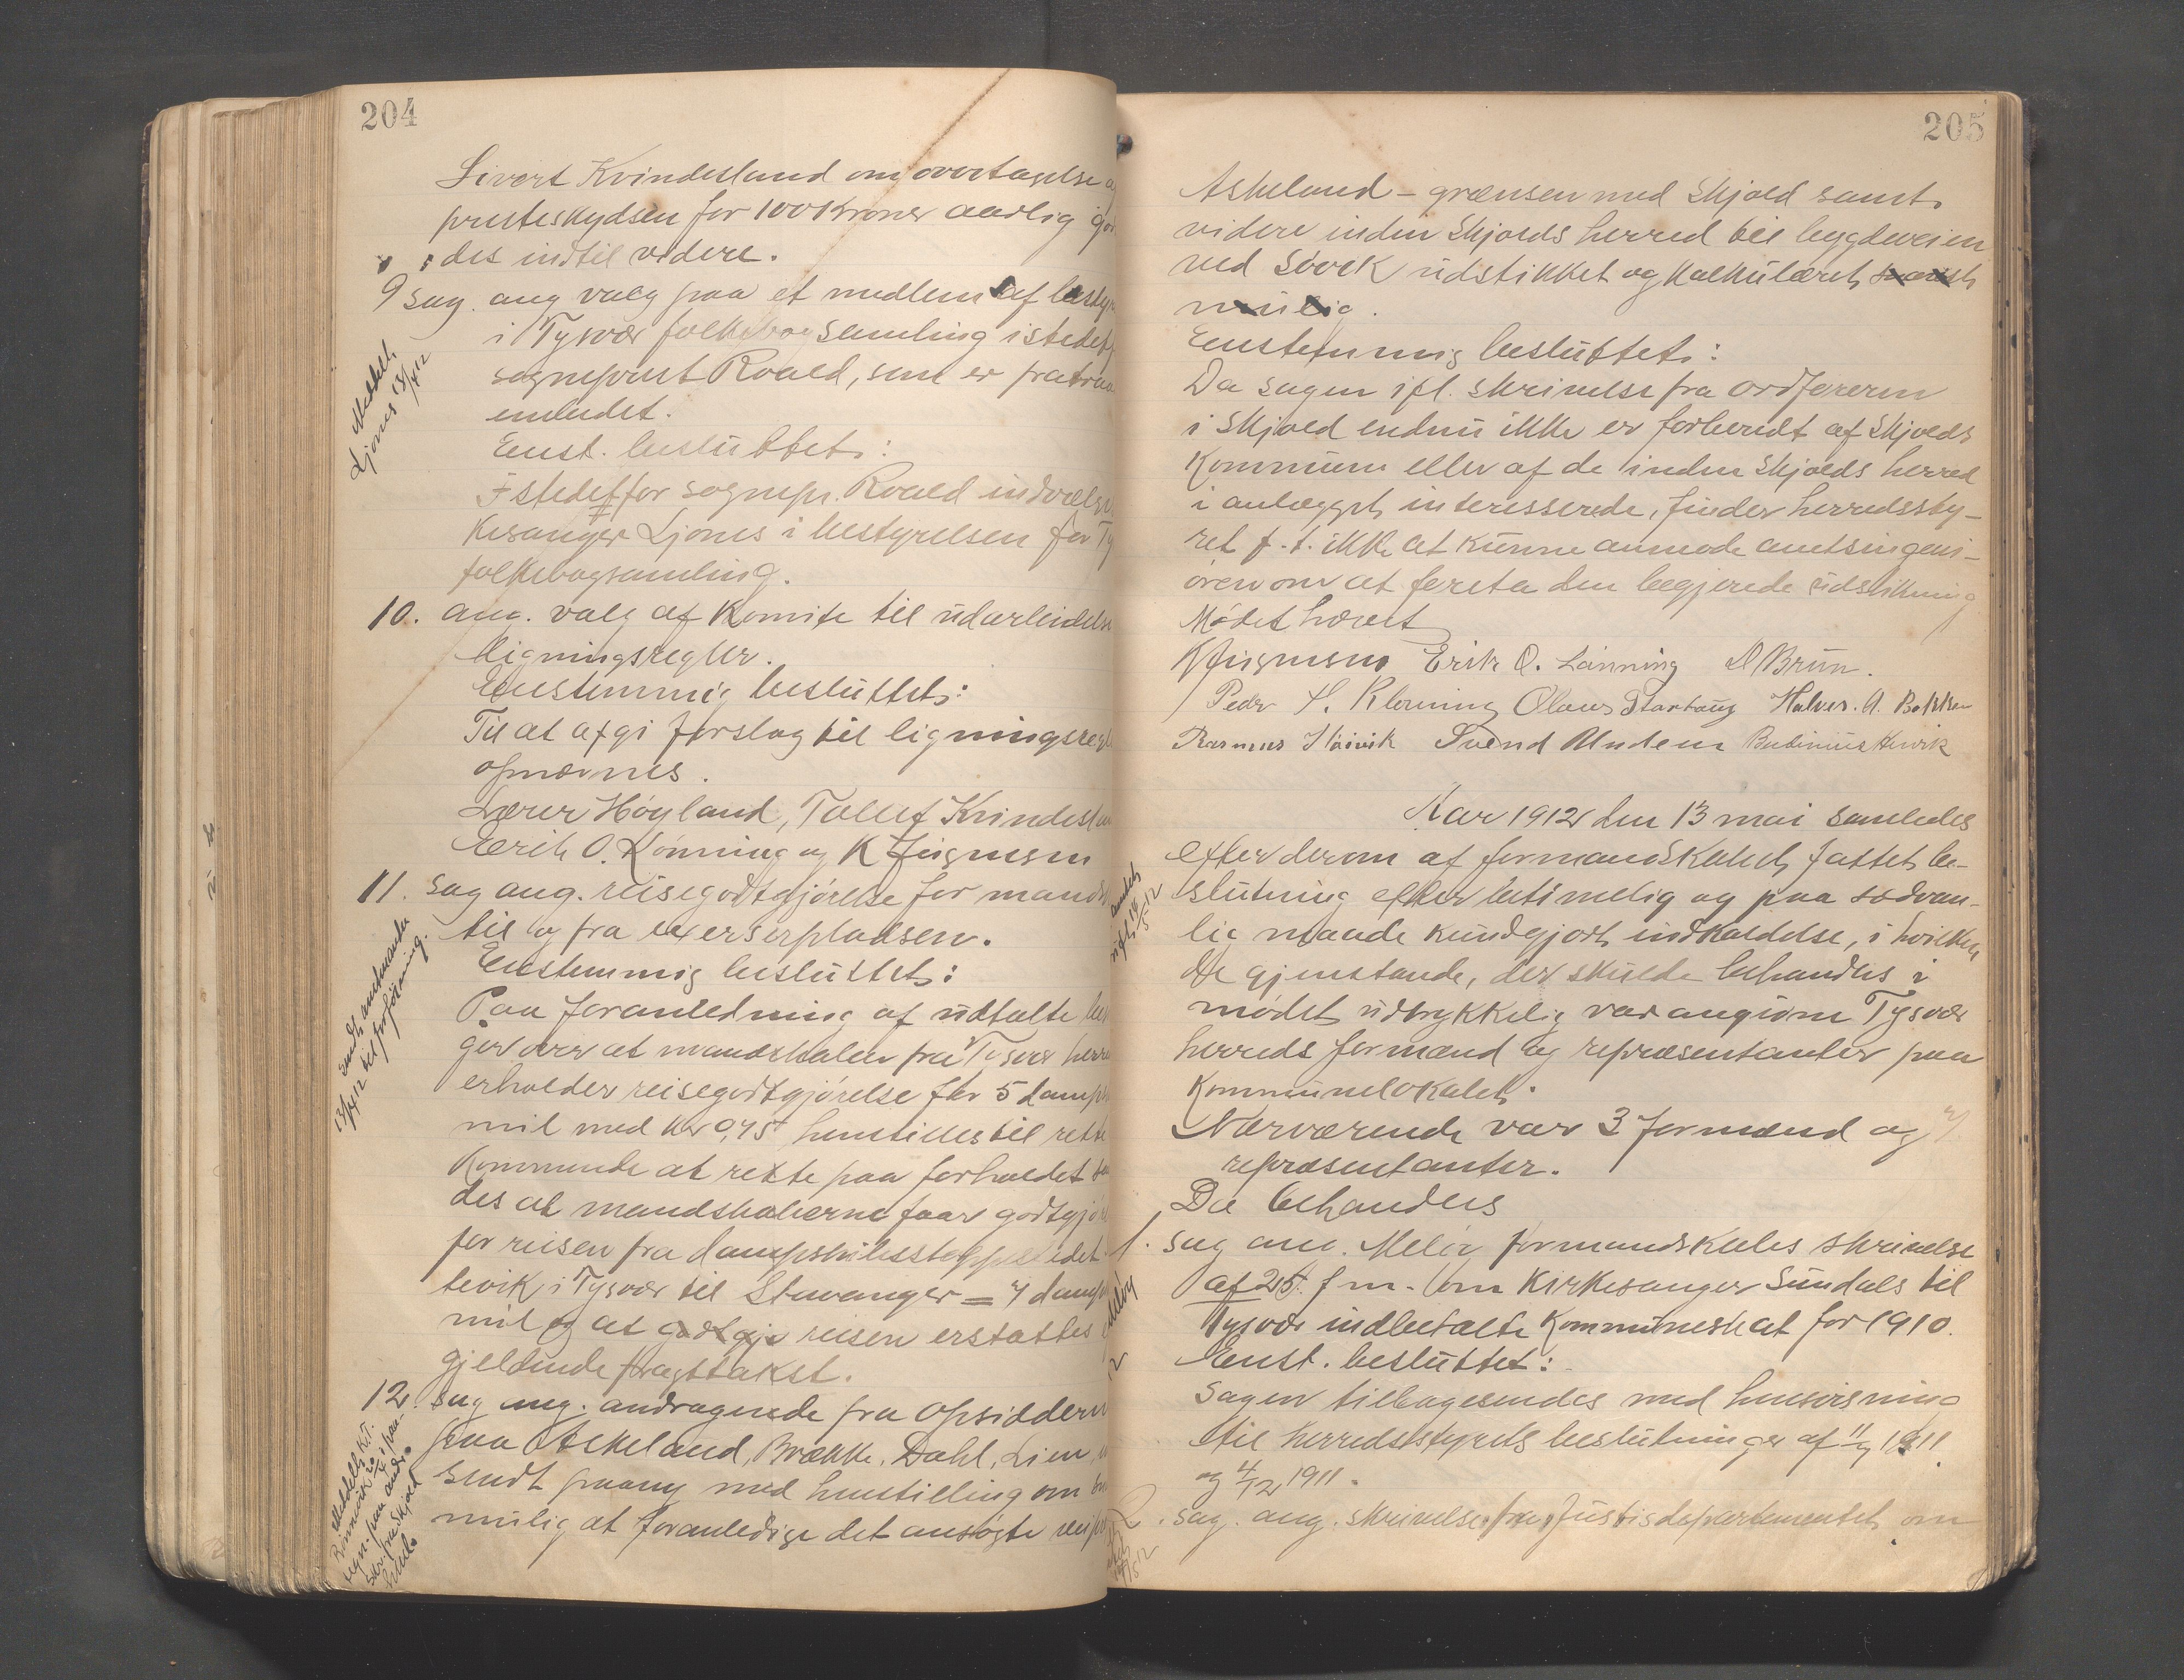 204
Sivert Kvindesland om overtagelse a
presteskydsen for 100 kroner aarlig god
des indtil videre.
9 sag. ang valg paa et medlem af besty
i Tysvær folkebogsamling istedetf
sogneprest Roald, som er fratraa
embedet.
Meddelt
Ljones 13/4 12
Enst. besluttet:
Istedetfor sognepr. Roald indvælges
Kirkesanger Ljones i bestyrelsen for Ty
folkebogsamling.
10. ang. valg af komite til udarbeidelse
ligningsregler.
Enstemmig besluttet:
Til at afgi forslag til ligningsregl
opnævnes.
Lærer Høyland, Tollef Kvindesla
Erik O. Lønning og K
11. sag ang. reisegodtgjørelse for mandsk
til og fra exerserpladsen.
sendt amtmanden
13/4 12 til forføining.
Enstemmig besluttet:
Paa foranledning af udtalte
ger over at mandskaber fra Tysvær herre
erholder reisegodtgjørelse for 5 damps
mil med kr 0,75 henstilles til rette
kommende at rette paa forholdet
des at mandskaberne faar godtgjør
for reisen fra dampskibsstoppestedet
tevik i Tysvær til Stavanger = 4 damps
mil og at godtgjø reisen erstattes
gjeldende fragttakst.
12. sag ang. andragende fra opsiddern
paa Askeland, Brække, Dahl, Lien,
sendt paany med henstilling om
mulig at foranledige det ansøgte vei
205
Askeland – grænsen med Skjold samt
videre inden Skjolds herred til bygdeveien
ved Søvik udstikket og kalkuleret snarest
mulig.
Enstemmig besluttet:
Da sagen ifl. skrivelse fra ordføreren
i Skjold endnu ikke er forberedt af Skjolds
kommune eller af de inden Skjolds herred
i anlægget interesserede, finder herredssty-
ret f. t. ikke at kunne anmode amtsingeni-
øren om at foreta den begjærede udstikning
Mødet hævet
Erik O. Lønning D Brün.
Peder H. Klovning Olaus Stortaug Halvor. A. Bokken
Rasmus Høivik Svend
Aar 1912 den 13 mai samledes
efter derom af formandskabet fattet be-
slutning efter betimelig og paa sedvan-
lig maade kundgjort indkaldelse, i hvilken
de gjenstande, der skulde behandles i
mødet udtrykkelig var angivne Tysvær
herreds formænd og repræsentanter paa
kommunelokalet.
Nærværende var 3 formænd og 9
repræsentanter.
Da behandles
1. sag ang. Meløy formandskabs skrivelse
af 25 f m. om kirkesanger Sundals til
Tysvær indbetalte kommuneskat for 1910.
Enst. besluttet:
Sagen tilbagesendes med henvisning
til herredsstyrets beslutninger af 11/9 1911
og 4/12 1911.
2. sag. ang. skrivelse fra Justisdepartementet om